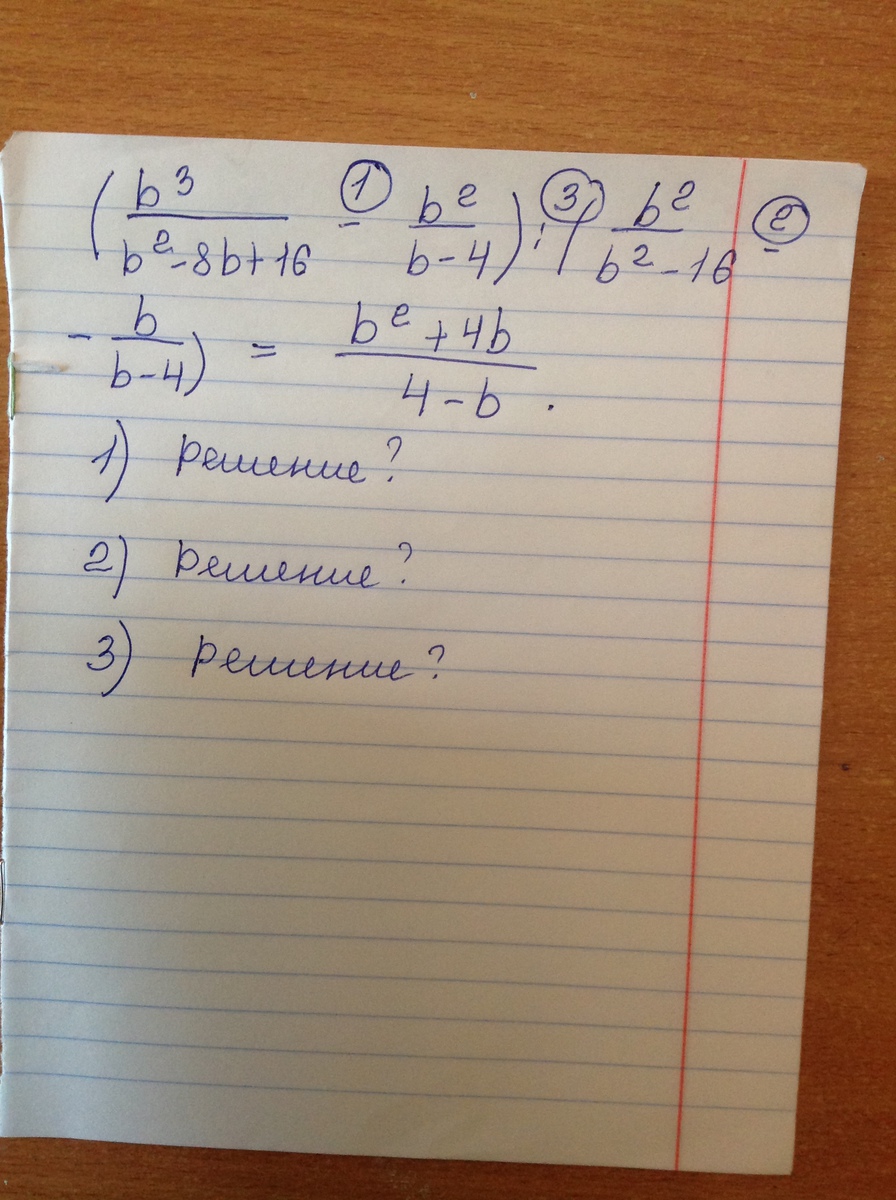 (b³/(b²-8b+16) ①- b²/(b-4)) :③ (b²/(b²-16) ②-
- b/(b-4)) = (b²+4b)/(4-b).
1) решение?
2) решение?
3) решение?